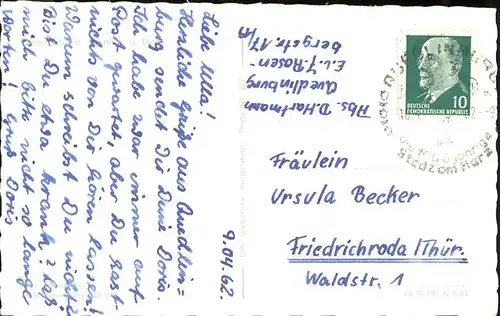 Liebe Ulla!
Herzliche Grüße aus Quedlin=
burg sendet Dir Deine Doris.
Ich habe zwar immer auf
Post gewartet, aber Du hast
nichts von Dir hören lassen!
Warum schreibst Du nicht?
Bist Du etwa krank? Laß
mich bitte nicht so lange
warten! Gruß Doris
9.04.62.
Abs. D. Hartmann
Quedlinburg
E.-L.-J. Rosen
bergstr. 17/
DEUTSCHE
DEMOKRATISCHE REPUBLIK
10
1000jährige
Stadt am Harz
Fräulein
Ursula Becker
Friedrichroda/Thür.
Waldstr. 1